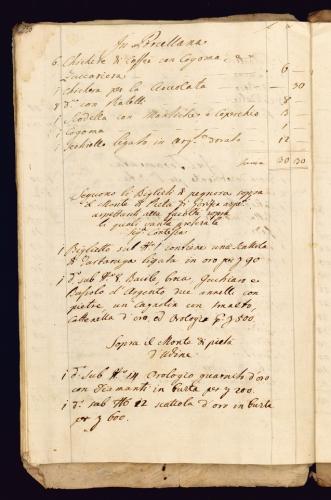 In Porcellana
6 Chichere di Caffè con Cogoma, e
Zuccariera 6
1 Chichera per la Cioccolata 30
8 d.i con Piatelli 8
1 Scodella con Mantiche e Coperchio 3
1 Cogoma 1
1 Gechietto legato in arg.to dorato 12
Soma 30 30
Seguono li Biglieti di pegnora sopra
il Monte di Pietà di
aspettanti alla facoltà sopra
le quali vanta
Sig.a Contessa
1 Biglietto sul N.o 1 contiene una Scattola
di Tartaruga legata in oro per 90
1 d.o sub N.o 8. Bacile, Broa, Guchiaro e
d'Argento due annelli con
pietre un con smalto
Cattenella d'oro, ed Orologio p. 800
Sopra il Monte di pietà
d'Udine
1 d.o sub N.o 14 Orologio guarnito d'oro
con Diamanti in busta per 200.
1 d.o sub N.o 12 scatiola d'oro in busta
per 600.